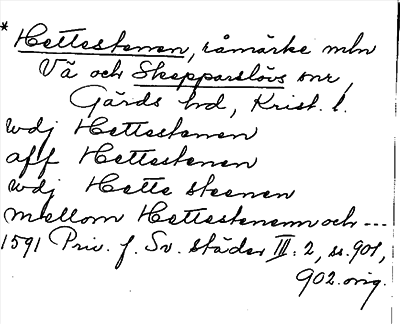 * Hettestenen, råmärke mln
Vä och Skepparslövs snr,
Gärds hd, Krist. l.
wdj Hettestenen
aff Hettestenen
wdj Hette steenen
mellom Hettestenenn och ---
1591 Priv. f. Sv. städer III: 2, s. 901,
902. orig.